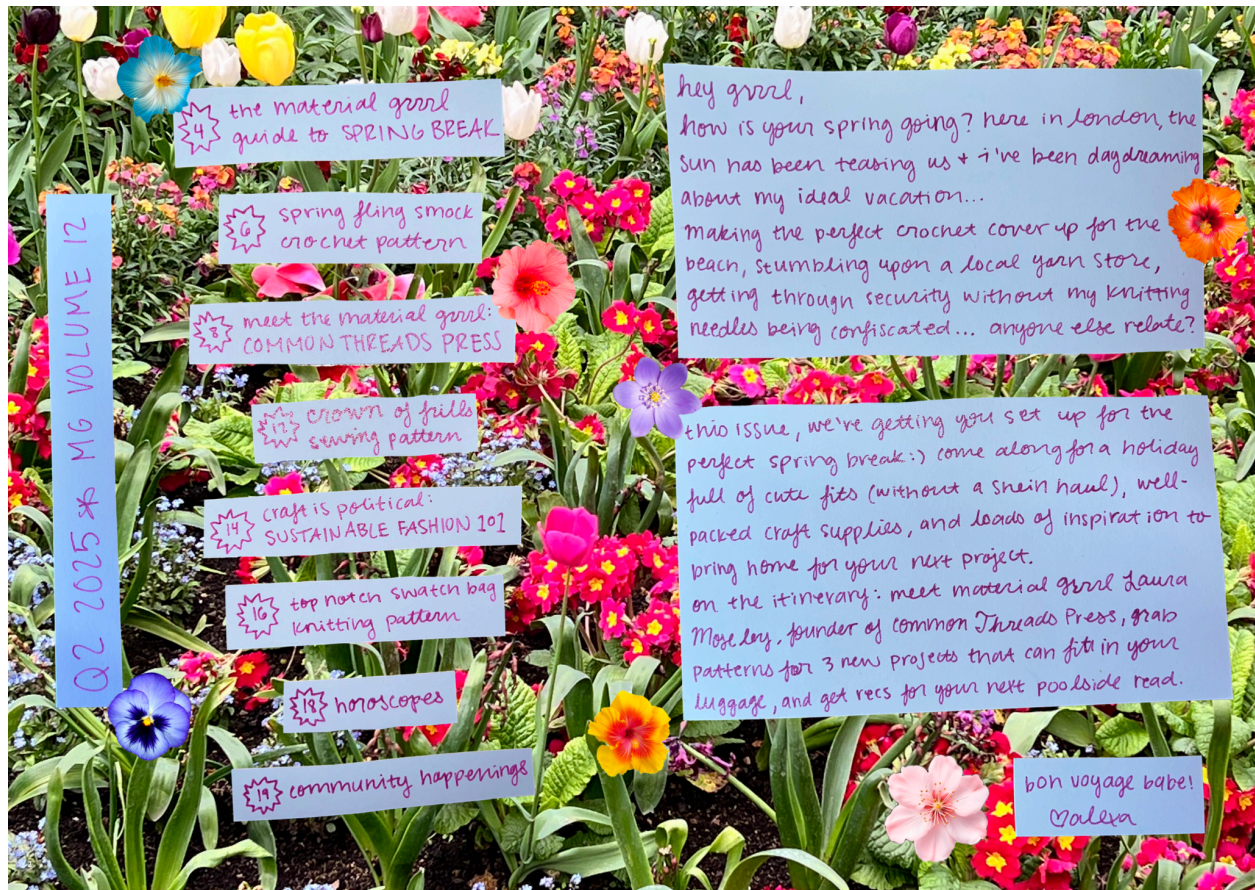 Q2 2025 * MG VOLUME 12
4 the material grrrl
guide to SPRING BREAK
6 spring fling smock
crochet pattern
8 meet the material grrrl:
COMMON THREADS PRESS
12 crown of frills
sewing pattern
14 craft is political:
SUSTAINABLE FASHION 101
16 top notch swatch bag
knitting pattern
18 horoscopes
19 community happenings
hey grrrl,
how is your spring going? here in london, the
sun has been teasing us + i've been daydreaming
about my ideal vacation...
making the perfect crochet cover up for the
beach, stumbling upon a local yarn store,
getting through security without my knitting
needles being confiscated... anyone else relate?
this issue, we're getting you set up for the
perfect spring break:) come along for a holiday
full of cute fits (without a shein haul), well-
packed craft supplies, and loads of inspiration to
bring home for your next project.
on the itinerary: meet material grrrl Laura
Moseley, founder of common Threads Press, grab
patterns for 3 new projects that can fit in your
luggage, and get recs for your next poolside read.
bon voyage babe!
♡alexa